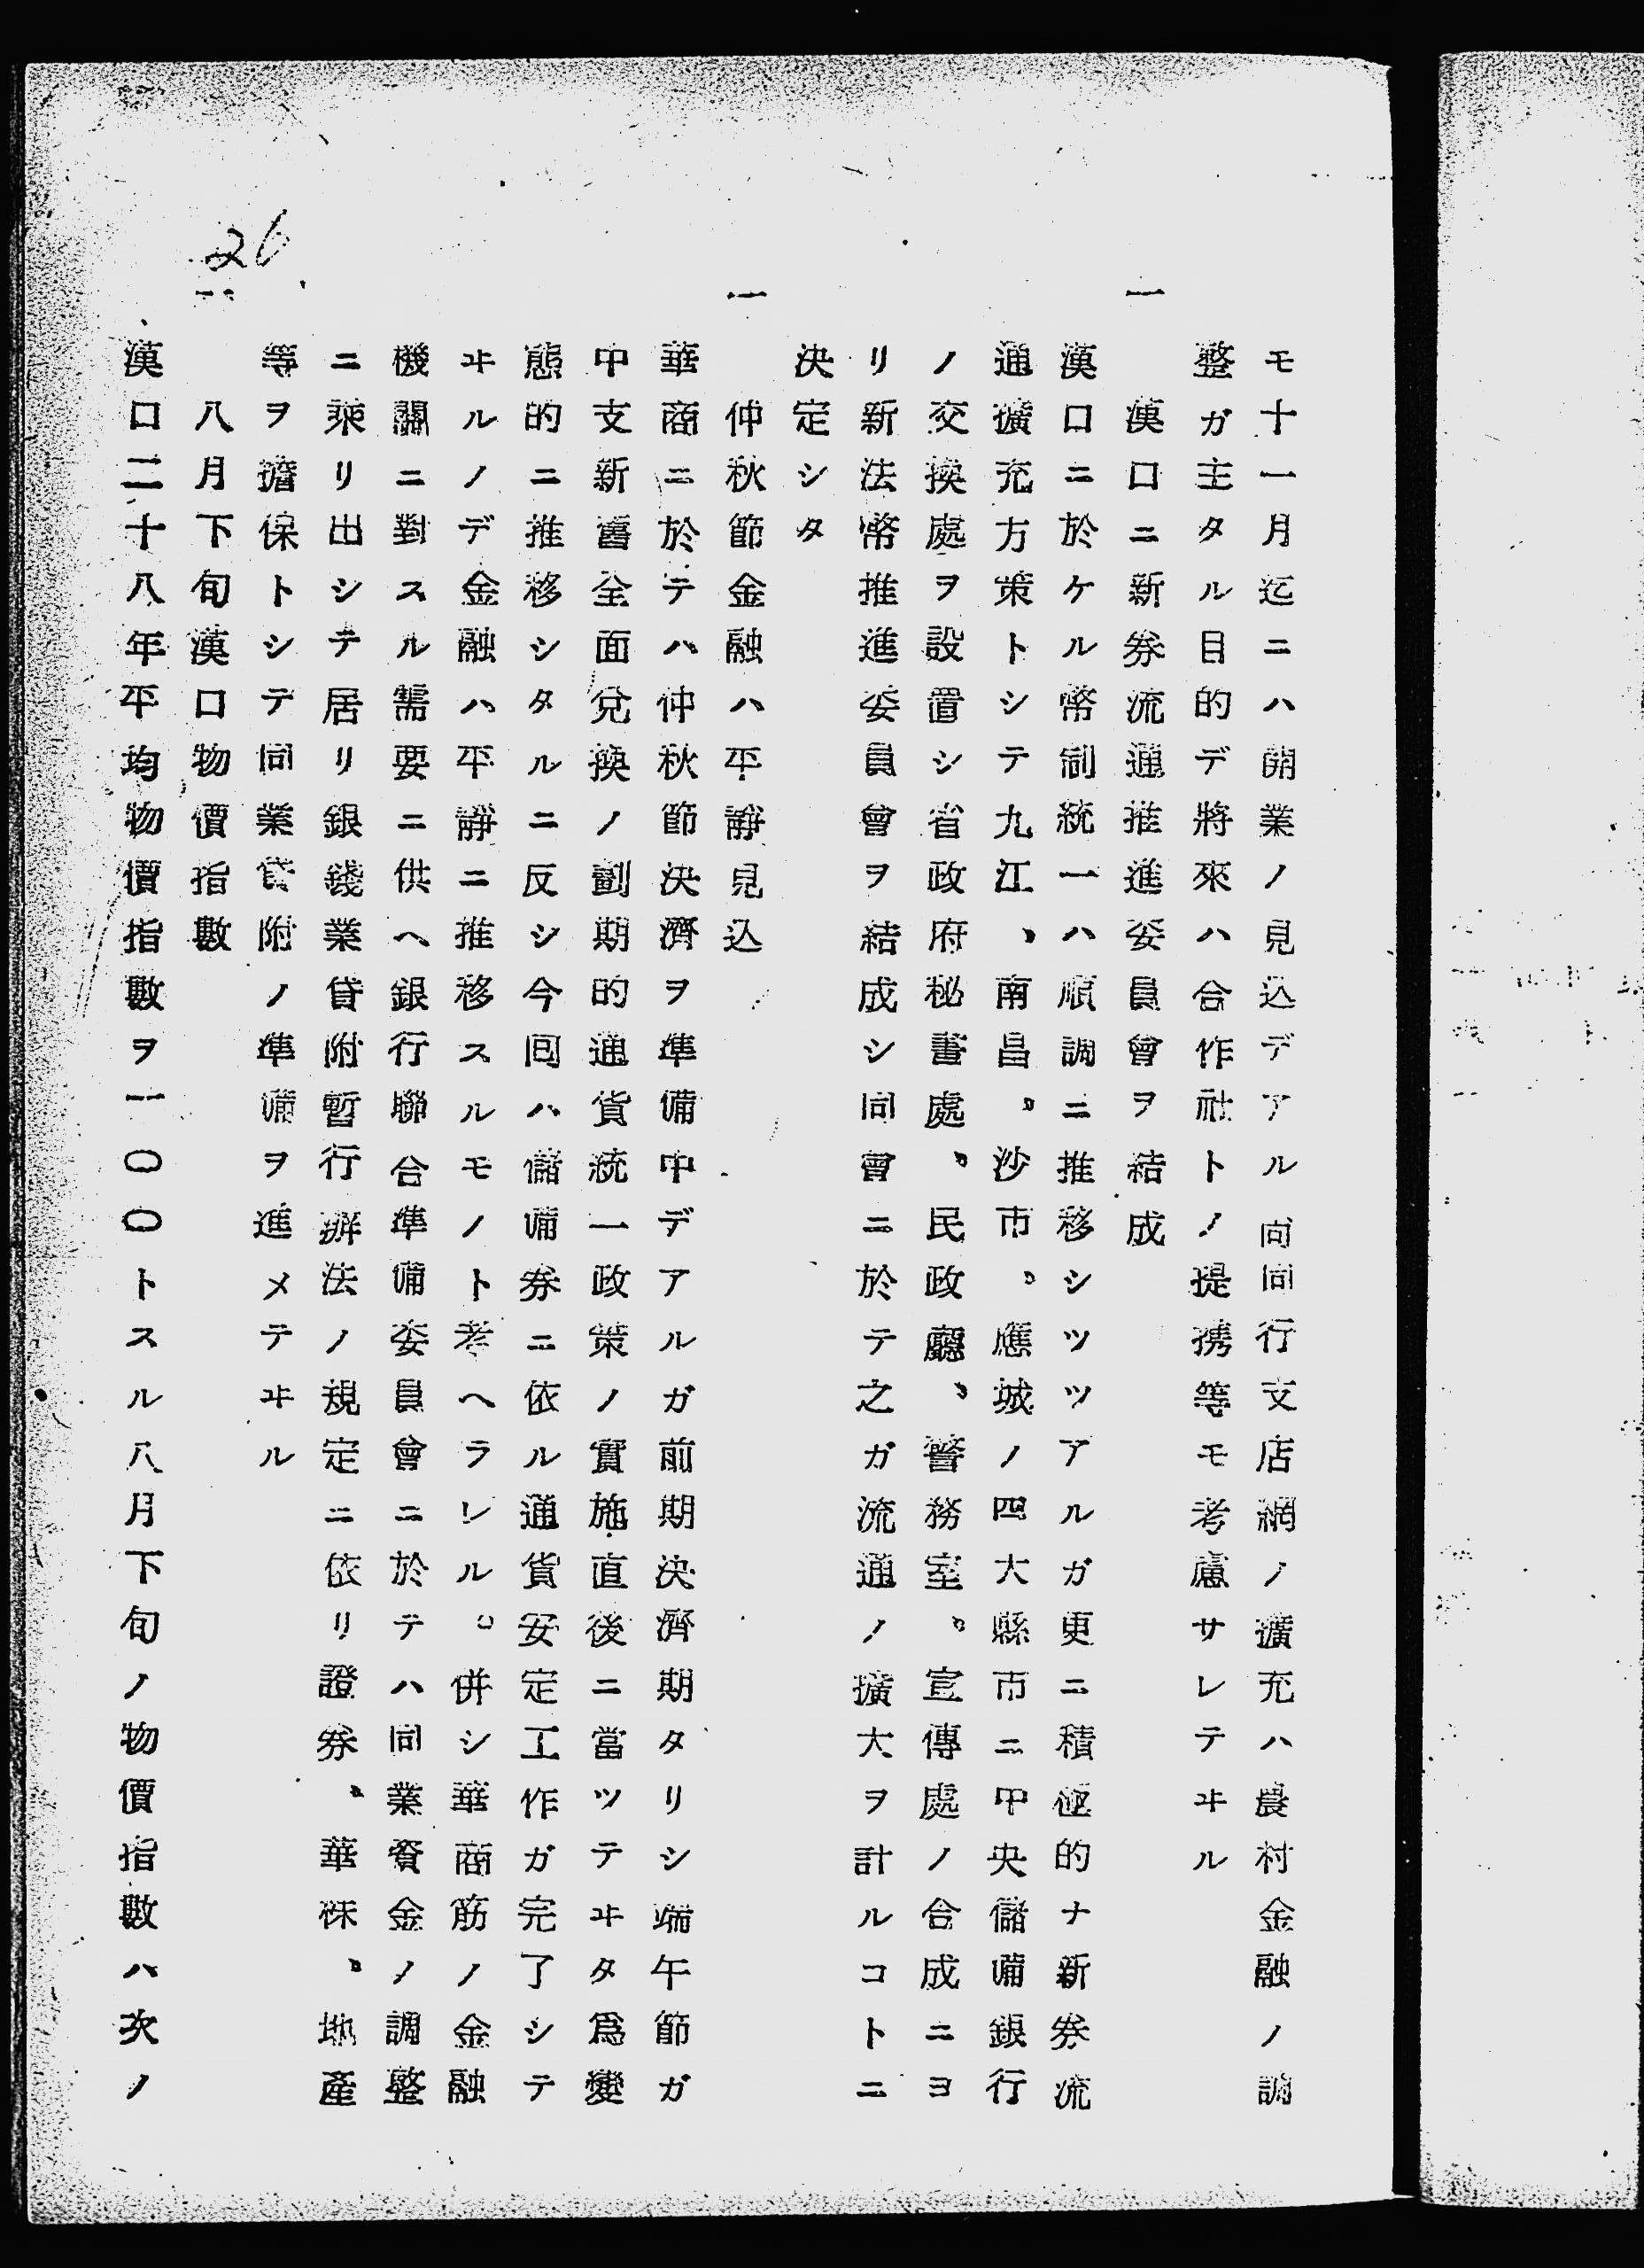 モ十一月迄ニハ開業ノ見込デアル尚同行支店網ノ擴充ハ農村金融ノ調
整ガ主タル目的デ將來ハ合作社トノ提携等モ考慮サレテヰル
一 漢口ニ新券流通推進委員會ヲ結成
漢口ニ於ケル幣制統一ハ順調ニ推移シツツアルガ更ニ積極的ナ新券流
通擴充方策トシテ九江、南昌、沙市、應城ノ四大縣市ニ中央儲備銀行
ノ交換處ヲ設置シ省政府秘書處、民政廳、警務室、宣傳處ノ合成ニヨ
リ新法幣推進委員會ヲ結成シ同會ニ於テ之ガ流通ノ擴大ヲ計ルコトニ
決定シタ
一 仲秋節金融ハ平靜見込
華商ニ於テハ仲秋節決濟ヲ準備中デアルガ前期決濟期タリシ端午節ガ
中支新舊全面兌換ノ劃期的通貨統一政策ノ實施直後ニ當ツテヰタ爲變
態的ニ推移シタルニ反シ今囘ハ儲備券ニ依ル通貨安定工作ガ完了シテ
ヰルノデ金融ハ平靜ニ推移スルモノト考ヘラレル。併シ華商筋ノ金融
機關ニ對スル需要ニ供ヘ銀行聯合準備委員會ニ於テハ同業資金ノ調整
ニ乘リ出シテ居リ銀錢業貸附暫行辦法ノ規定ニ依リ證券、華株、地產
等ヲ擔保トシテ同業貸附ノ準備ヲ進メテヰル
26
一、八月下旬漢口物價指數
漢口二十八年平均物價指數ヲ一〇〇トスル八月下旬ノ物價指數ハ次ノ